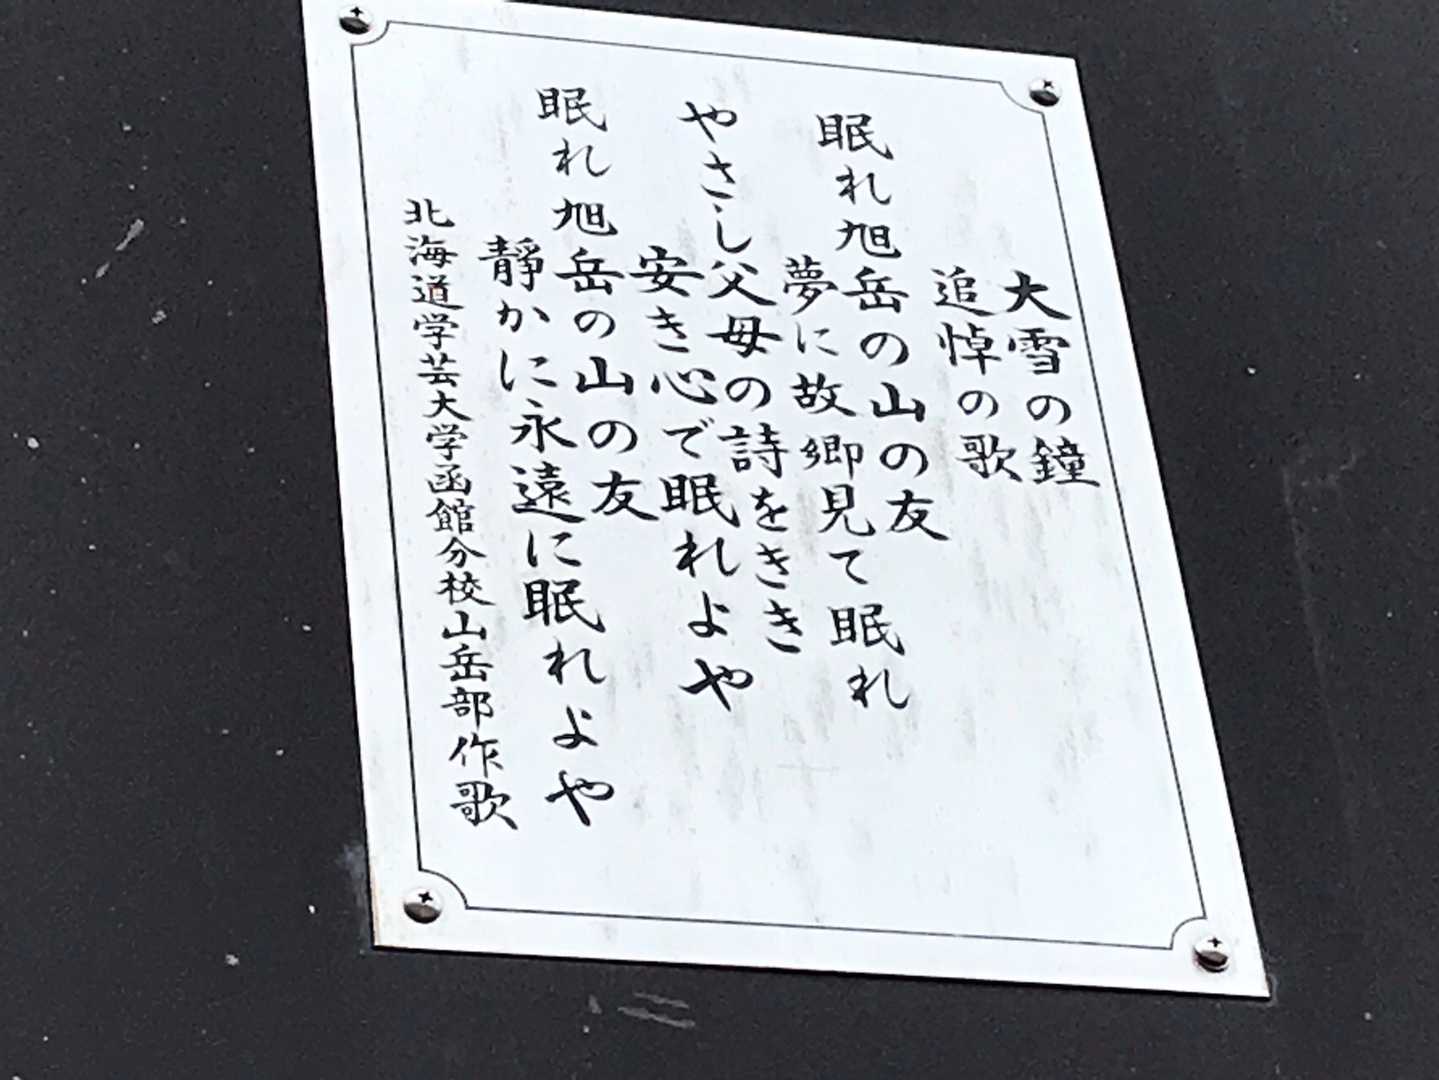 大雪の鐘
追悼の歌
眠れ旭岳の山の友
夢に故郷見て眠れ
やさし父母の詩をきき
安き心で眠れよや
眠れ旭岳の山の友
静かに永遠に眠れよや
北海道学芸大学函館分校山岳部作歌